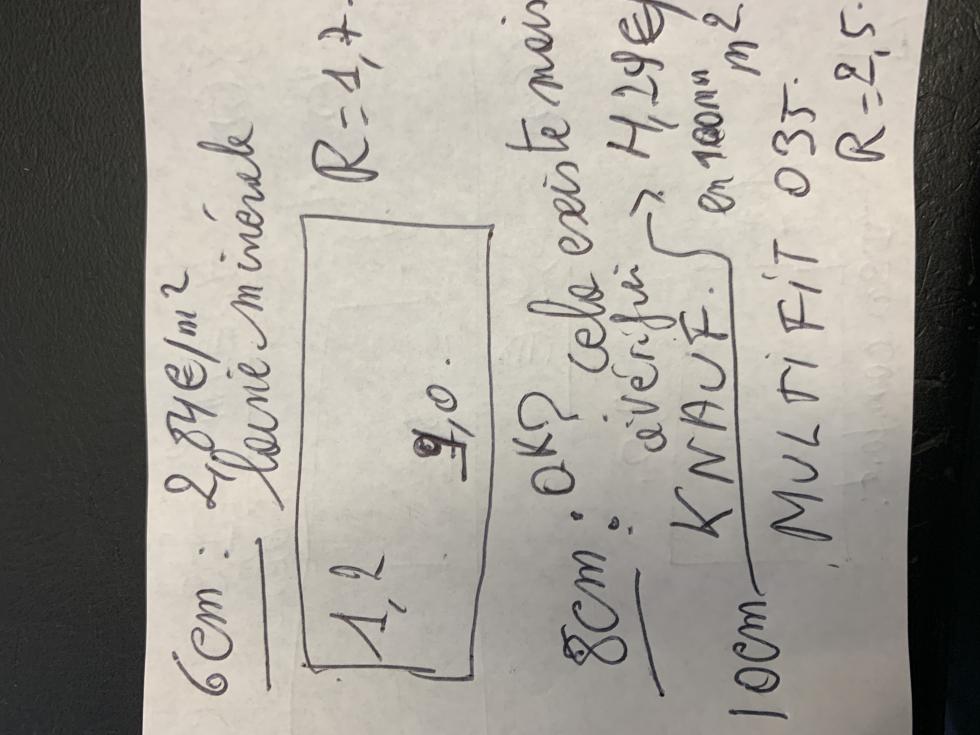 6cm : 2,84€/m²
laine minérale
R = 1,7.
1,2
9,0.
8cm : OK? cela existe mais
à vérifier
KNAUF. → 4,29€/m2
en 100mm
10cm
MULTIFIT 035.
R = 2,5.